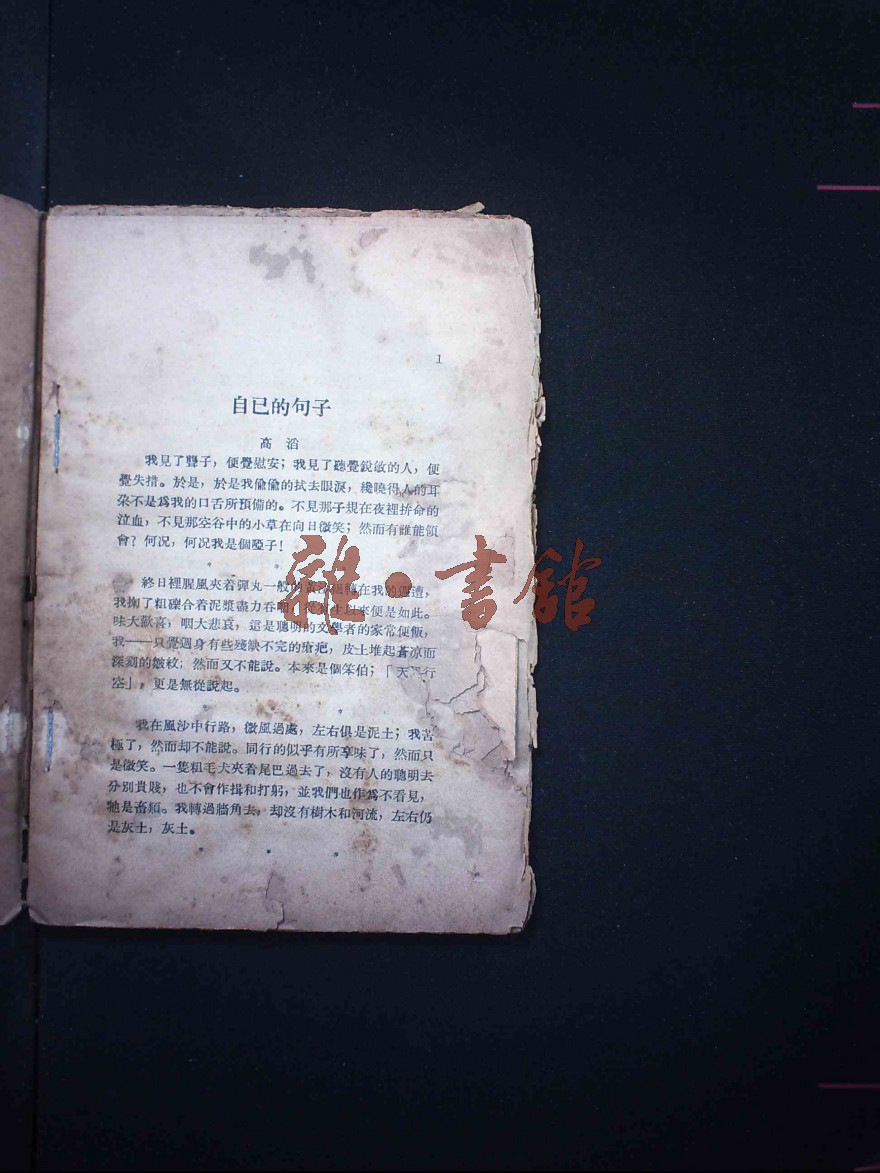 1
自已的句子
高滔
我見了聾子，便覺慰安；我見了聽覺銳敏的人，便
覺失措。於是，於是我偷偷的拭去眼淚，纔曉得人的耳
朶不是爲我的口舌所預備的。不見那子規在夜裡拚命的
泣血，不見那空谷中的小草在向日微笑；然而有誰能領
會？何況，何況我是個啞子！
終日裡腥風夾着彈丸一般的在我的週遭，
我掬了粗礫合着泥漿盡力吞咽，從來便是如此。
味大歡喜，咽大悲哀，這是聰明的文學者的家常便飯，
我——只覺週身有些殘缺不完的瘡疤，皮土堆起蒼凉而
深刻的皺紋；然而又不能說。本來是個笨伯；「天行
空」，更是無從說起。
我在風沙中行路，微風過處，左右俱是泥土；我苦
極了，然而却不能說。同行的似乎有所享味了，然而只
是微笑。一隻粗毛犬夾着尾巴過去了，沒有人的聰明去
分別貴賤，也不會作揖和打躬，並我們也作爲不看見，
牠是畜類。我轉過牆角去，却沒有樹木和河流，左右仍
是灰土，灰土。
雜·書館